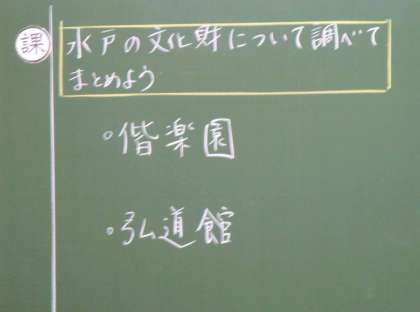 課
水戸の文化財について調べて
まとめよう
・偕楽園
・弘道館